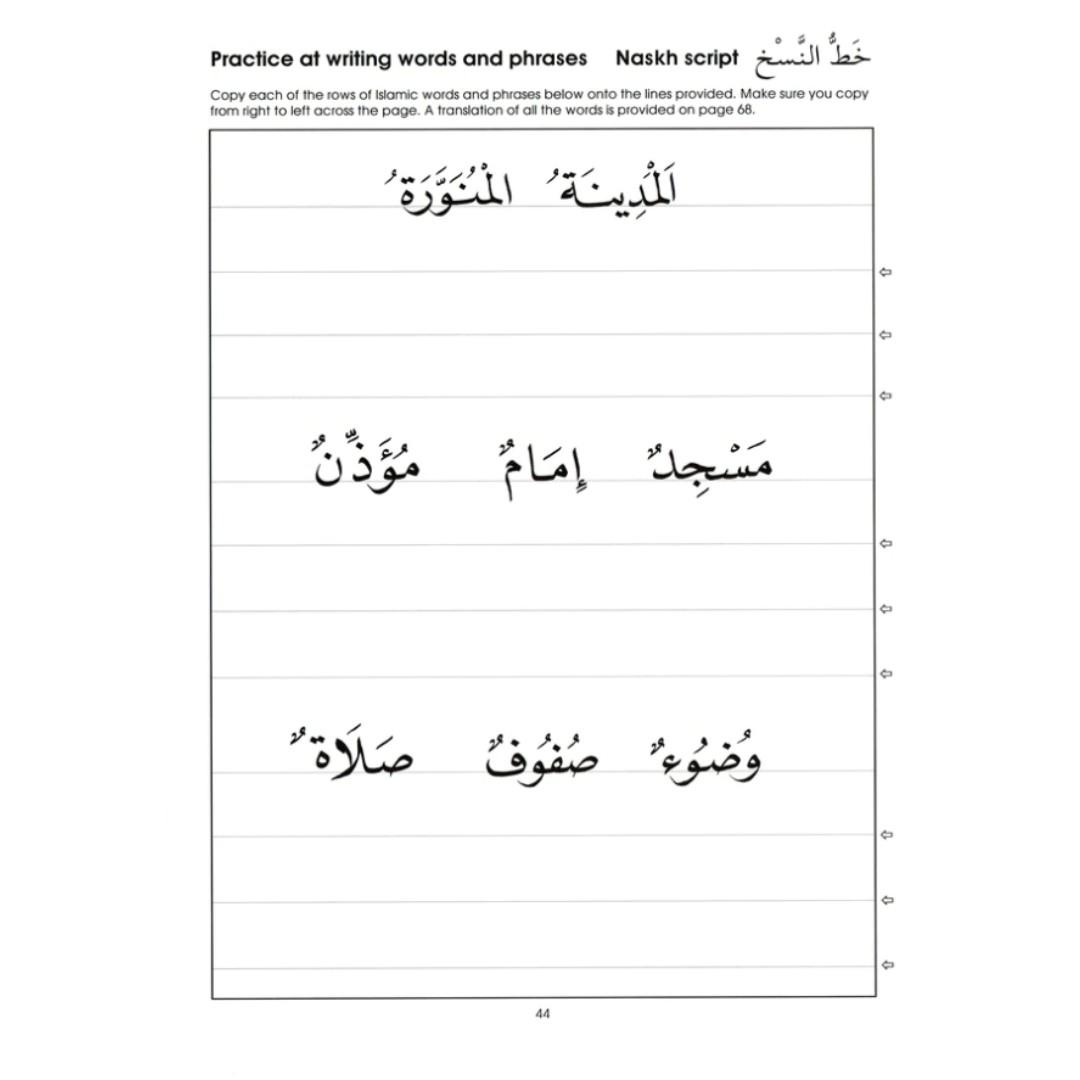 Practice at writing words and phrases Naskh script خَطُّ النَّسْخ
Copy each of the rows of Islamic words and phrases below onto the lines provided. Make sure you copy
from right to left across the page. A translation of all the words is provided on page 68.
اَلْمَدِينَةُ الْمُنَوَّرَةُ
مَسْجِدٌ إِمَامٌ مُؤَذِّنٌ
وُضُوُءٌ صُفُوُفٌ صَلَاةٌ
44